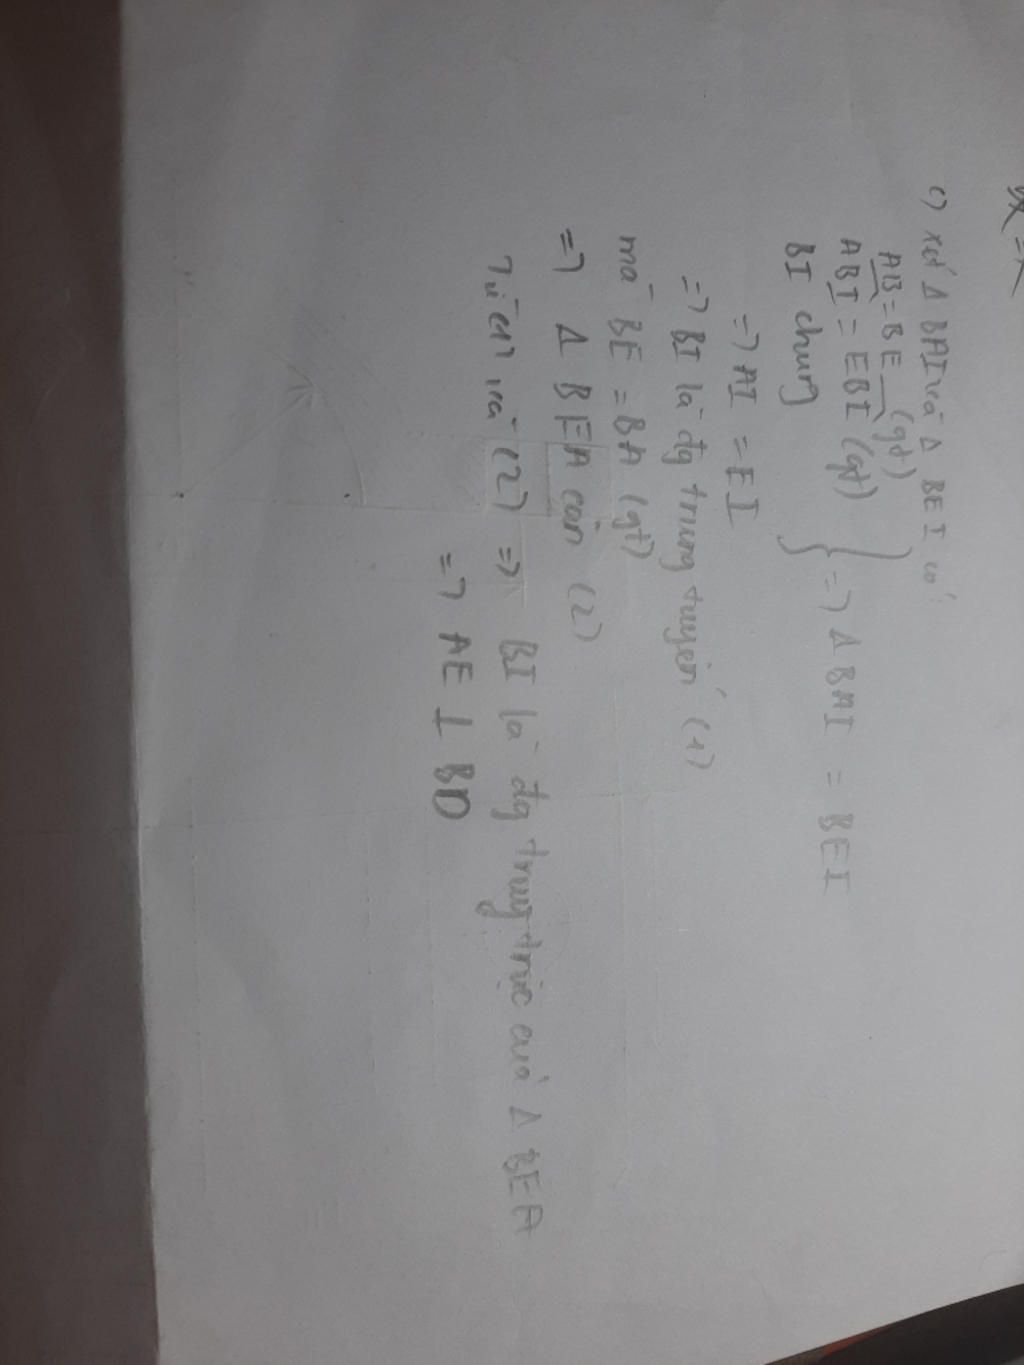 c) xét Δ BAI và Δ BEI có:
AB = BE (gt)
ABI = EBI (gt) } => Δ BAI = BEI
BI chung
=> AI = EI
=> BI là đg trung tuyến (1)
mà BE = BA (gt)
=> Δ BEA cân (2)
Từ (1) và (2) => BI là đg trung trực của Δ BEA
=> AE ⊥ BD